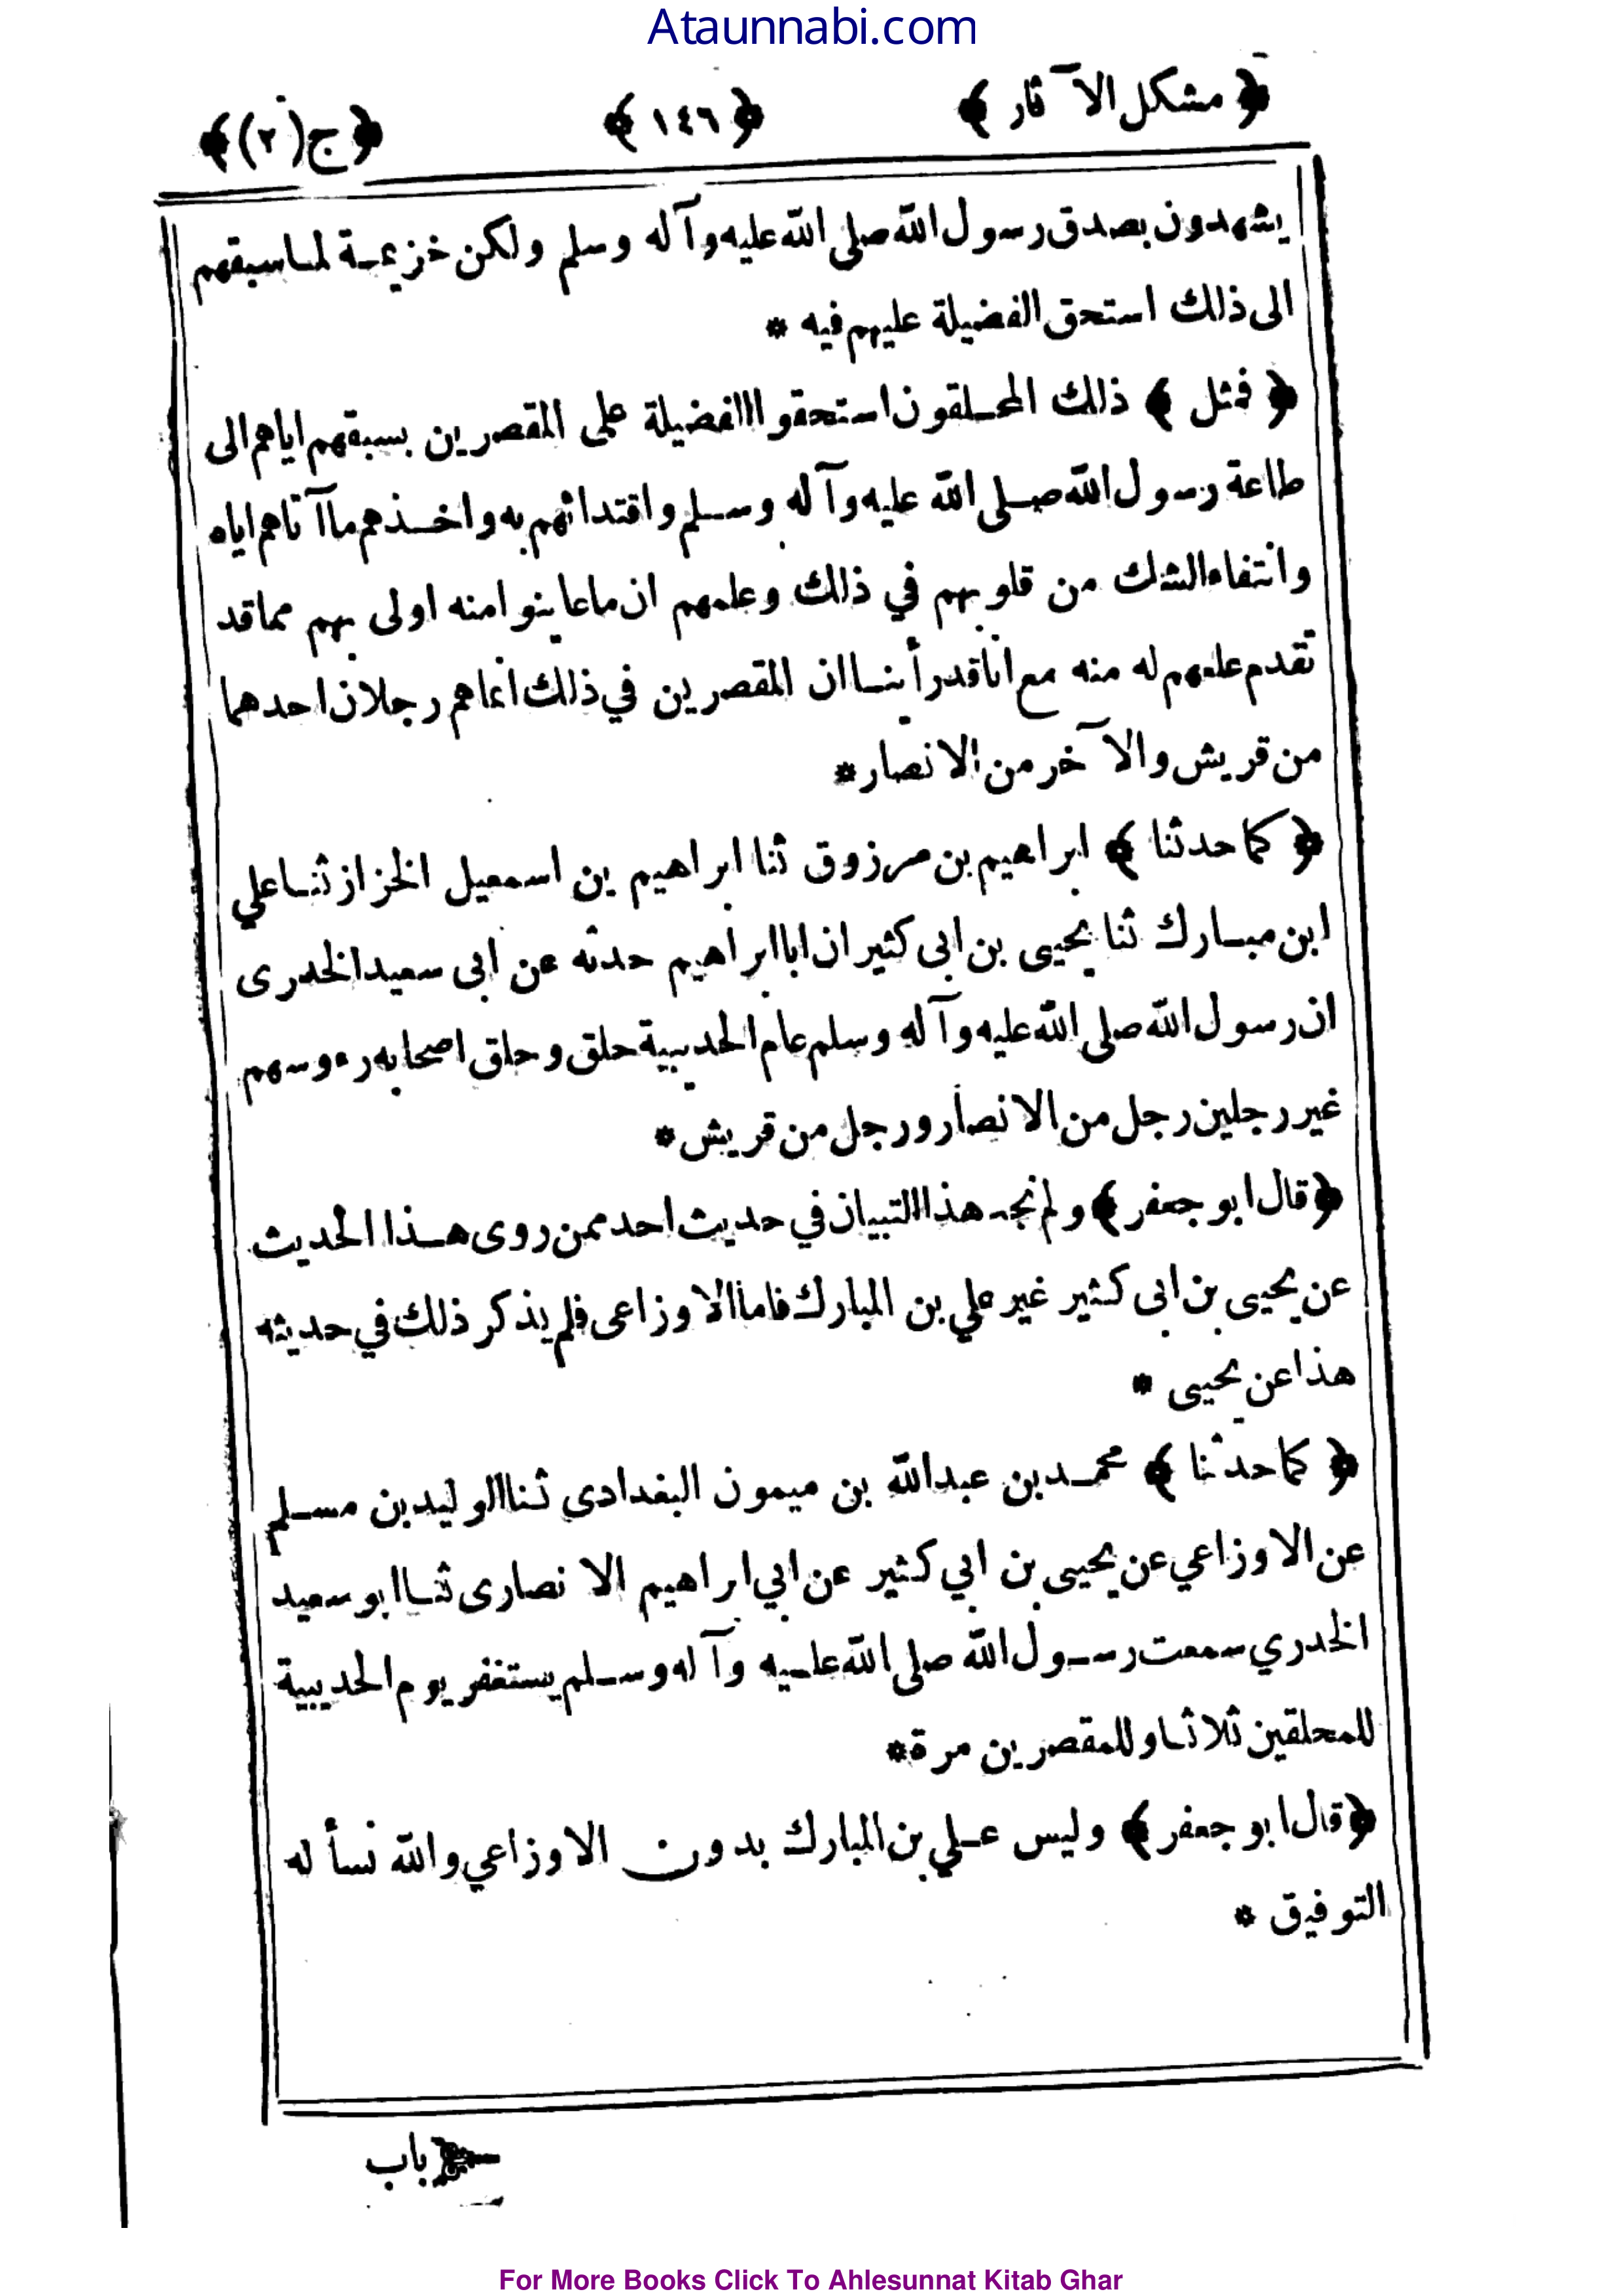 Ataunnabi.com
﴿ مشكل الآثار ﴾ ﴿ ١٤٦ ﴾ ﴿ ج (٢) ﴾
يشهدون بصدق رسول الله صلى الله عليه وآله وسلم ولكن خزيمة لما سبقهم
الى ذلك استحق الفضيلة عليهم فيه *
﴿ فمثل ﴾ ذلك المحلقون استحقوا الفضيلة على المقصرين بسبقهم اياهم الى
طاعة رسول الله صلى الله عليه وآله وسلم واقتدائهم به واخذهم ما آتاهم اياه
وانتفاء الشك من قلوبهم في ذلك وعلمهم ان ما عاينوا منه اولى بهم مما قد
تقدم علمهم له منه مع انا قد رأينا ان المقصرين في ذلك انما هم رجلان احدهما
من قريش والآخر من الانصار *
﴿ كما حدثنا ﴾ ابراهيم بن مرزوق ثنا ابراهيم بن اسمعيل الخزاز ثنا علي
ابن مبارك ثنا يحيى بن ابى كثير ان ابا ابراهيم حدثه عن ابى سعيد الخدرى
ان رسول الله صلى الله عليه وآله وسلم عام الحديبية حلق وحلق اصحابه رءوسهم
غير رجلين رجل من الانصار ورجل من قريش *
﴿ قال ابو جعفر ﴾ ولم نجد هذا التبيان في حديث احد ممن روى هذا الحديث
عن يحيى بن ابى كثير غير علي بن المبارك فاما الاوزاعى فلم يذكر ذلك في حديثه
هذا عن يحيى *
﴿ كما حدثنا ﴾ محمد بن عبد الله بن ميمون البغدادى ثنا الوليد بن مسلم
عن الاوزاعي عن يحيى بن ابي كثير عن ابي ابراهيم الانصارى ثنا ابو سعيد
الخدري سمعت رسول الله صلى الله عليه وآله وسلم يستغفر يوم الحديبية
للمحلقين ثلاثا وللمقصرين مرة *
﴿ قال ابو جعفر ﴾ وليس علي بن المبارك بدون الاوزاعي والله نسأله
التوفيق *
باب
For More Books Click To Ahlesunnat Kitab Ghar